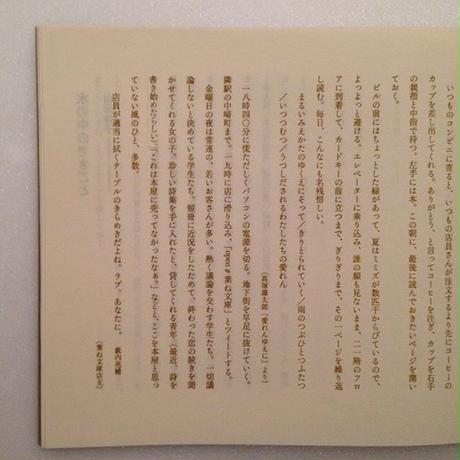 いつものコンビニに寄ると、いつもの店員さんが注文するより先にコーヒーの
カップを差し出してくれる。ありがとう、と言ってコーヒーを注ぎ、カップを右手
の親指と中指で持つ。左手には本。この朝に、最後に読んでおきたいページを開い
ておく。
ビルの前にはちょっとした緑があって、夏はミミズが数匹干からびているので、
よっよっと避ける。エレベーターに乗り込み、誰の顔も見ないまま、二一階のフロ
アに到着して、カードキーの前に立つまで、ぎりぎりまで、その一ページを繰り返
し読む。毎日、こんなにも名残惜しい。
まるいみえかたのゆくえにそって／きりとられていく／雨のつぶひとつふたつ
／いつつむつ／うつしだされるわたしたちの愛れん
（萩塚謙太郎「愛れんゆもに」より）
一八時四〇分に慌ただしくパソコンの電源を切る。地下街を早足に抜けていく。
隣駅の中崎町まで。一九時に店に滑り込み、「open＠葉ね文庫」とツイートする。
金曜日の夜は常連の、若いお客さんが多い。熱く議論を交わす学生たち。一切議
論しないと決めている学生たち。短冊に近況をしたためて、終わった恋の続きを聞
かせてくれる女の子。珍しい詩集を手に入れたと、貸してくれる青年（最近、詩を
書き始めたらしい）。「これは本屋に売ってなかったなぁ。」などと、ここを本屋と思っ
ていない風のひと、多数。
店員が適当に拭くテーブルのきらめきだよね。ラブ。あなたに。
藪内亮輔
（葉ね文庫店主）